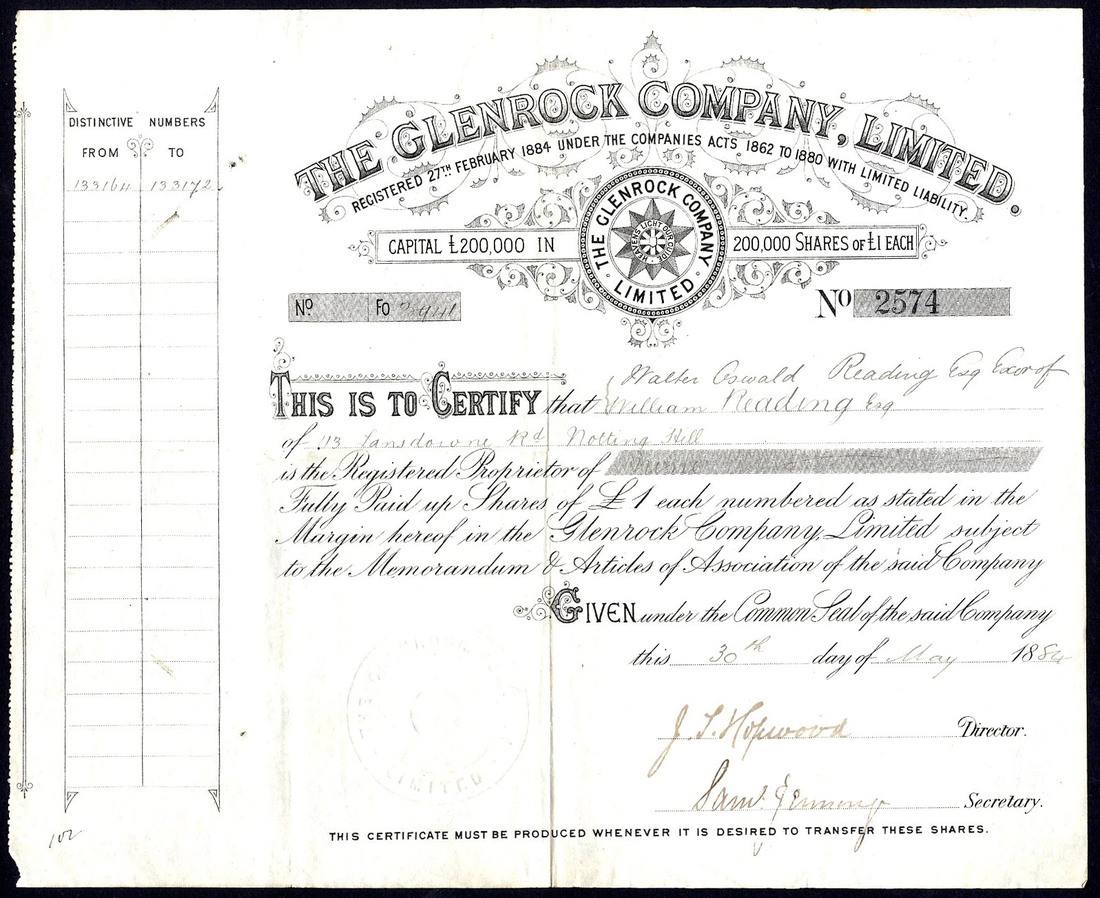 DISTINCTIVE NUMBERS
FROM TO
133164 133172
THE GLENROCK COMPANY, LIMITED.
REGISTERED 27TH FEBRUARY 1884 UNDER THE COMPANIES ACTS 1862 TO 1880 WITH LIMITED LIABILITY.
CAPITAL £200,000 IN
THE GLENROCK COMPANY
LIMITED
HEAVENS LIGHT OUR GUIDE
200,000 SHARES OF £1 EACH
No Fo
No 2574
Walter Oswald Reading Esq Exor of
THIS IS TO CERTIFY that William Reading Esq
of 113 Lansdowne Rd Notting Hill
is the Registered Proprietor of
Fully Paid up Shares of £1 each numbered as stated in the
Margin hereof in the Glenrock Company, Limited subject
to the Memorandum & Articles of Association of the said Company
GIVEN under the Common Seal of the said Company
this 30th day of May 188
J. S. Hopwood Director.
Saml. Secretary.
LIMITED
THIS CERTIFICATE MUST BE PRODUCED WHENEVER IT IS DESIRED TO TRANSFER THESE SHARES.
102